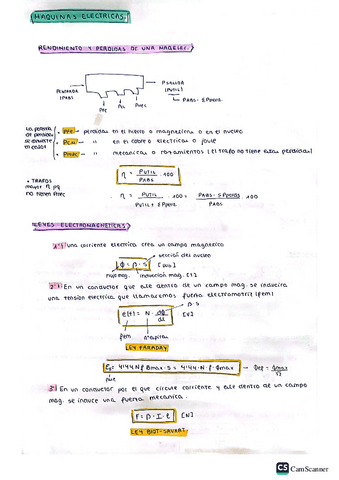 MAQUINAS ELECTRICAS:
RENDIMIENTO Y PERDIDAS DE UNA MAQ ELEC.
PENTRADA
(PABS)
PSALIDA
(PUTIL)
PABS - ΣPperd.
PFe
Pcu
Pmec
La potencia
de perdidas
se convierte
en calor
PFe → perdidas en el hierro o magneticas o en el nucleo
Pcu → " en el cobre o electricas o joule
Pmec → " mecanicas o rozamientos (el trafo no tiene estas perdidas)
* TRAFOS
mayor η pq
no tienen Pmec
η = PUTIL / PABS · 100
η = PUTIL / PUTIL + ΣPperd. · 100 = PABS - ΣPperds / PABS · 100
LEYES ELECTROMAGNETICAS
1ª) Una corriente electrica crea un campo magnetico
sección del nucleo
Φ = β · S [Wb]
flujo mag. inducción mag. [T]
2ª) En un conductor que este dentro de un campo mag. se inducira
una tensión electrica que llamaremos fuerza electromotriz (fem)
e(t) = N · dΦ/dt [V]
fem nº espiras
LEY FARADAY
E = 4'44 N f Bmax · S = 4'44 · N · f · Φmax
3ª) En un conductor por el que circule corriente y este dentro de un campo
mag. se induce una fuerza mecanica.
F = β · I · l [N]
LEY BIOT-SAVART
CS CamScanner